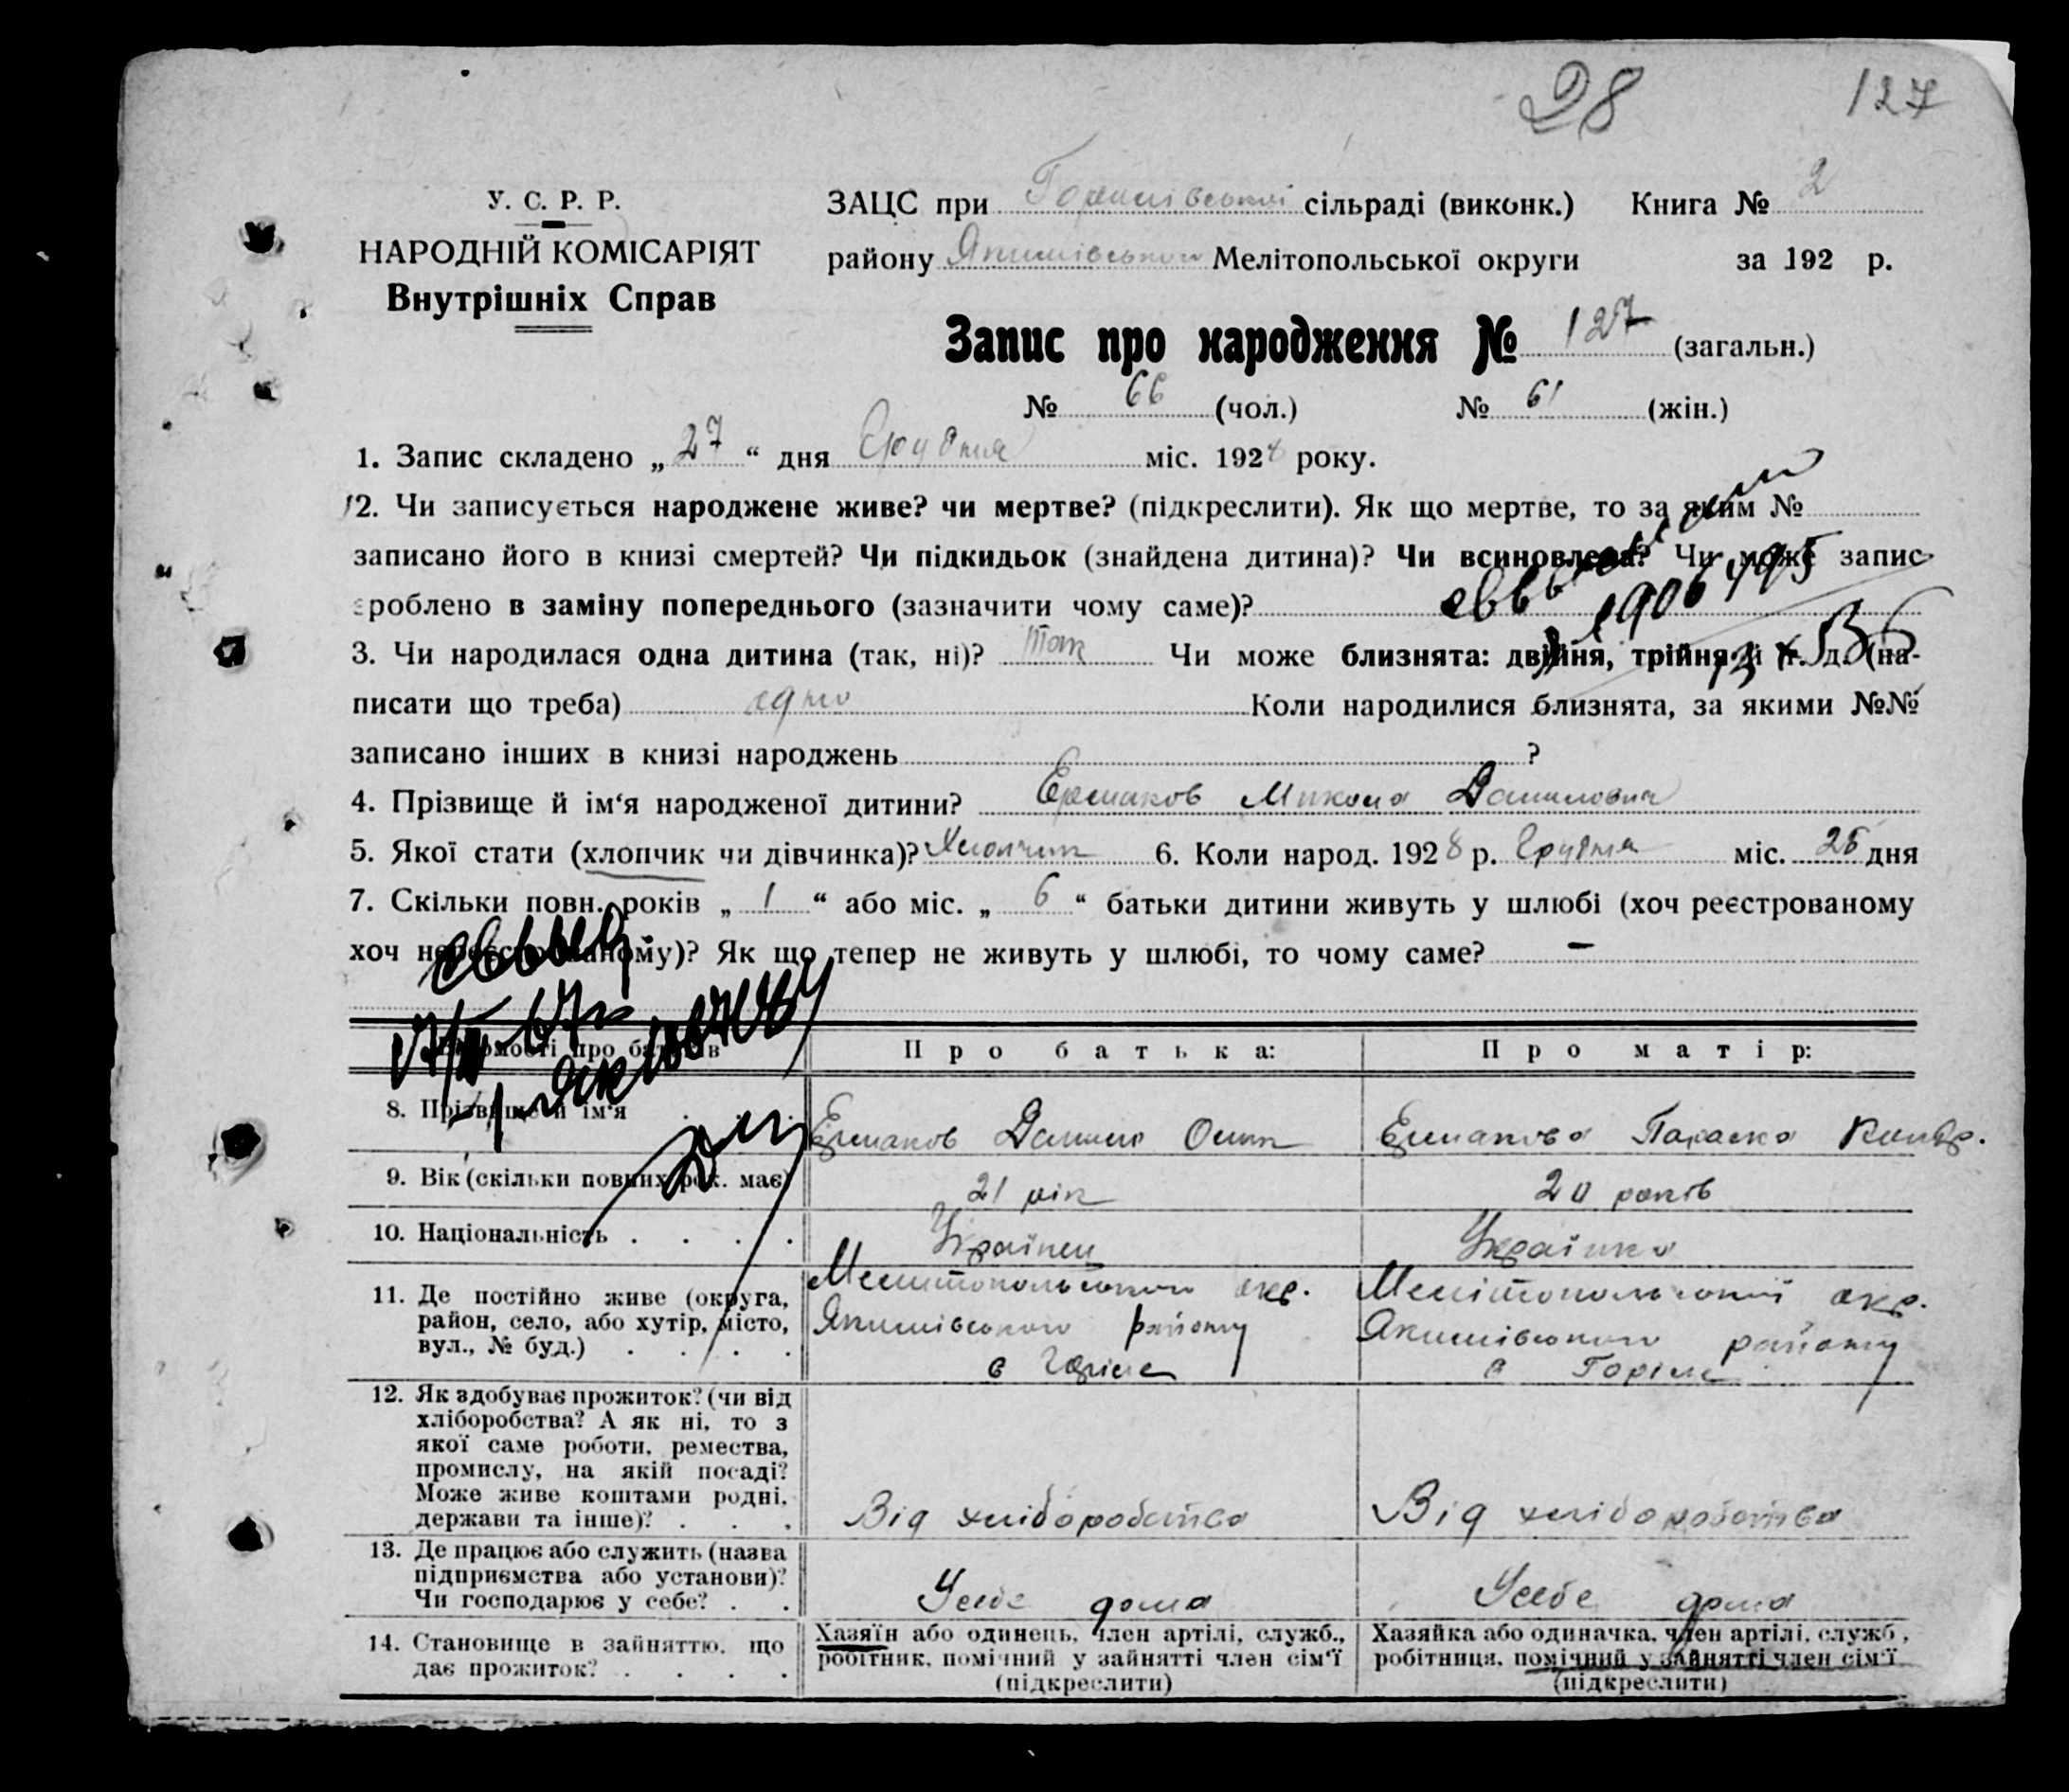 28 127
У. С. Р. Р.
НАРОДНІЙ КОМІСАРІЯТ
Внутрішніх Справ
ЗАЦС при сільраді (виконк.) Книга № 2
району Якимівського Мелітопольської округи за 192 р.
Запис про народження № 127 (загальн.)
№ 66 (чол.) № 61 (жін.)
1. Запис складено „27“ дня Грудня міс. 1928 року.
2. Чи записується народжене живе? чи мертве? (підкреслити). Як що мертве, то за яким №
записано його в книзі смертей? Чи підкидьок (знайдена дитина)? Чи всиновлена? Чи може запис
зроблено в заміну попереднього (зазначити чому саме)?
3. Чи народилася одна дитина (так, ні)? Так Чи може близнята: двійня, трійня й т. д. (на-
писати що треба) одно Коли народилися близнята, за якими №№
записано інших в книзі народжень ?
4. Прізвище й ім‘я народженої дитини? Ермаков Микола Данилович
5. Якої стати (хлопчик чи дівчинка)? Хлопчик 6. Коли народ. 1928 р. Грудня міс. 26 дня
7. Скільки повн. років „1“ або міс. „6“ батьки дитини живуть у шлюбі (хоч реєстрованому
хоч нереєстрованому)? Як що тепер не живуть у шлюбі, то чому саме? –
Відомості про батьків Про батька: Про матір:
8. Прізвище й ім‘я Ермаков Данило Ермакова Параска
9. Вік (скільки повних рок. має) 21 рік 20 років
10. Національність Українец Українка
11. Де постійно живе (округа, район, село, або хутір, місто, вул., № буд.)
Мелитопольского окр. Мелітопольської окр.
Якимівського району Якимівського району
с Горіле с Горіле
12. Як здобуває прожиток? (чи від
хліборобства? А як ні, то з
якої саме роботи, ремества,
промислу, на якій посаді?
Може живе коштами родні,
держави та інше)? Від хліборобства Від хліборобства
13. Де працює або служить (назва
підприємства або установи)?
Чи господарює у себе? Усебе дома Усебе дома
14. Становище в зайняттю, що
дає прожиток?
Хазяїн або одинець, член артілі, служб.,
робітник, помічний у зайнятті член сім‘ї
(підкреслити)
Хазяйка або одиначка, член артілі, служб.,
робітниця, помічний у зайнятті член сім‘ї
(підкреслити)